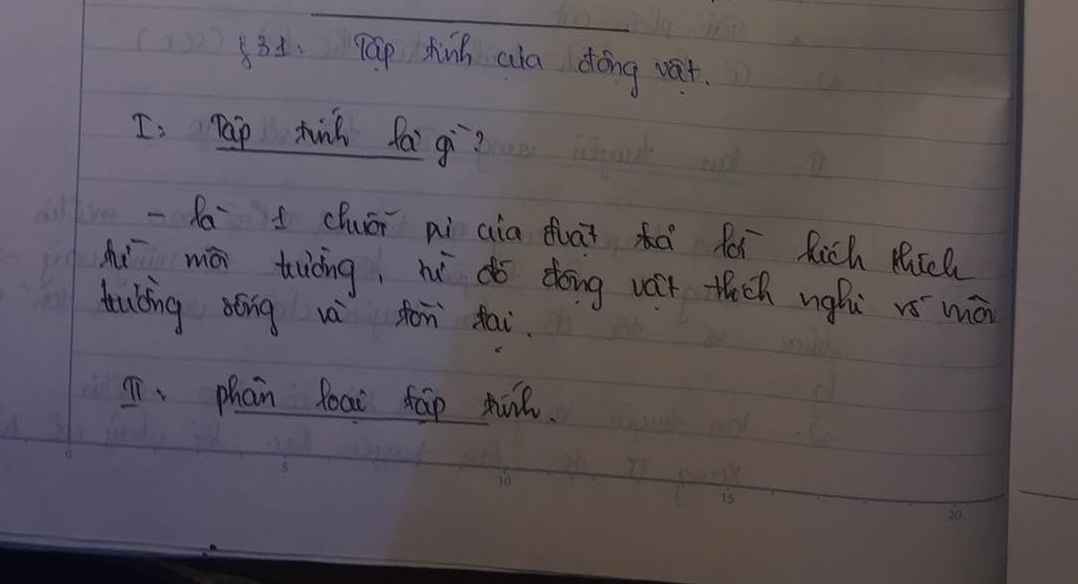 §31. Tập tính của động vật.
I: Tập tính là gì?
- là 1 chuỗi pư của đvật trả lời kích thích
từ môi trường, nhờ đó động vật thích nghi vs môi
trường sống và tồn tại.
II. phân loại tập tính.
0 5 10 15 20